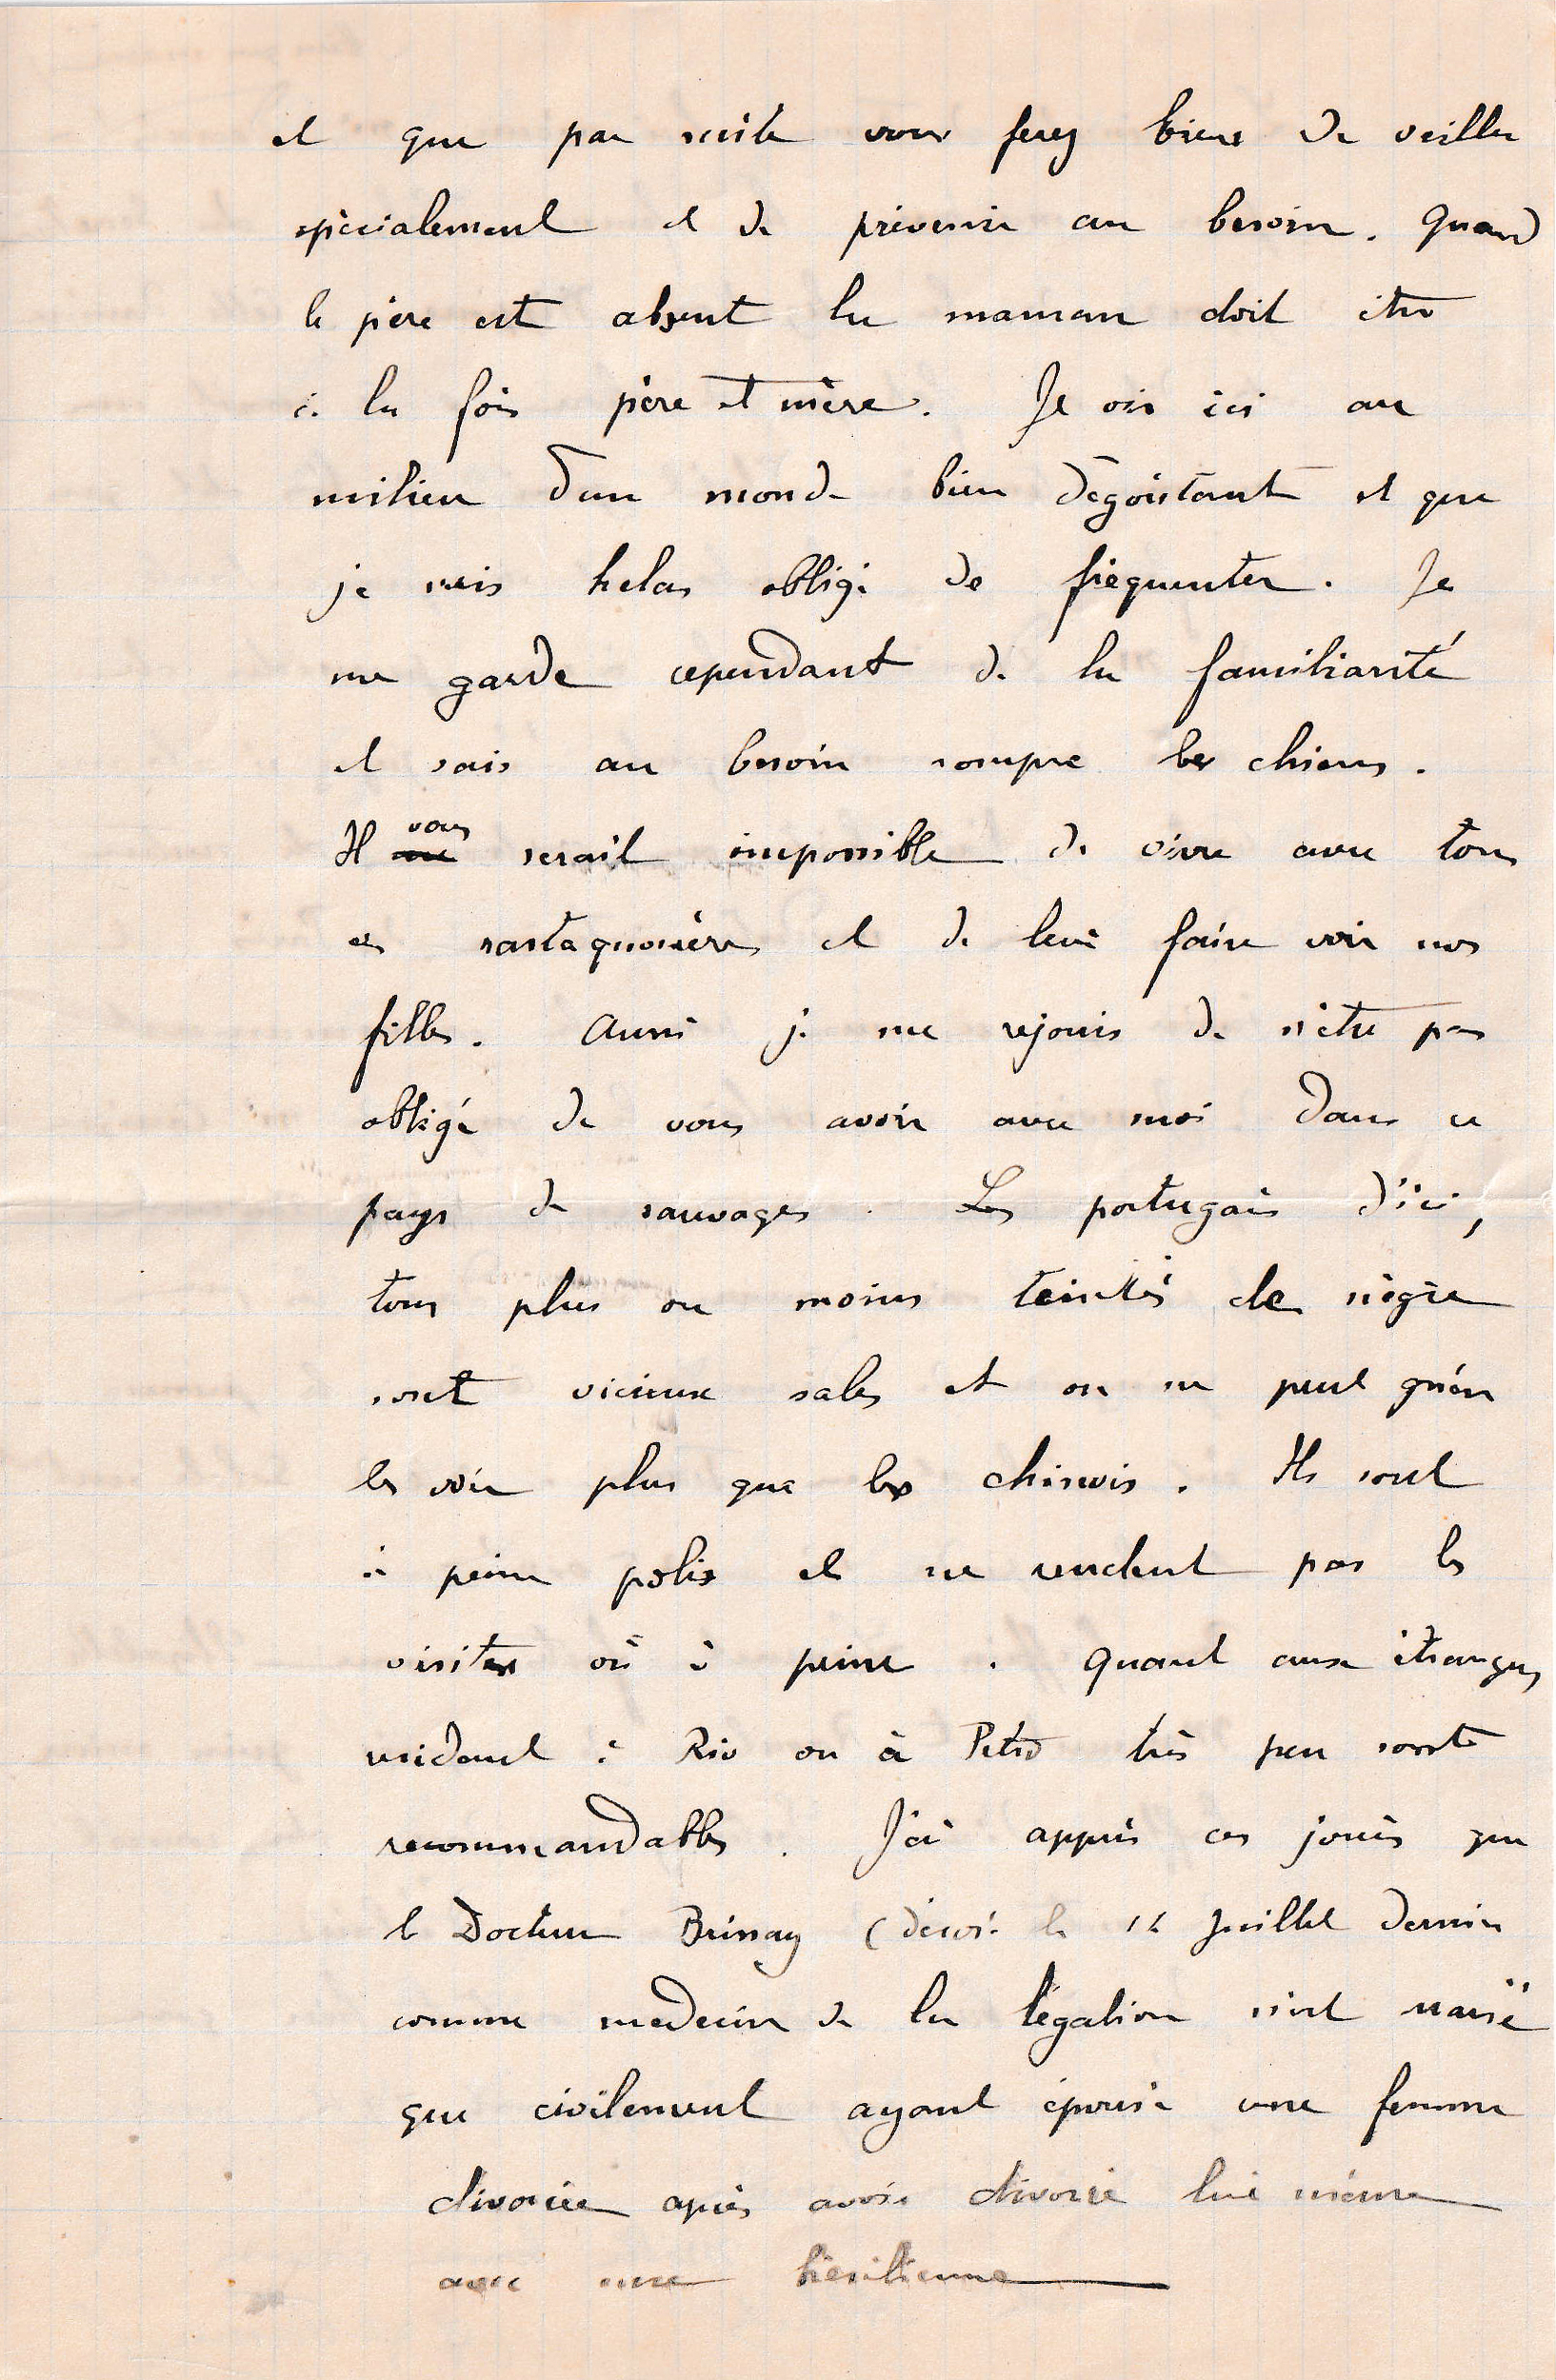 et que par suite vous ferez bien de veiller
spécialement et de prévenir au besoin. Quand
le père est absent la maman doit être
à la fois père et mère. Je vis ici au
milieu d'un monde bien dégoûtant et que
je suis helas obligé de fréquenter. Je
me garde cependant de la familiarité
et sais au besoin rompre les chiens.
Il me vous serait impossible de vivre avec tous
ces rastaquouères et de leur faire voir nos
filles. Aussi je me rejouis de n'être pas
obligé de vous avoir avec moi dans ce
pays de sauvages. Les portugais d'ici,
tous plus ou moins teintés de nègre
sont vicieux sales et on ne peut guère
les voir plus que les chinois. Ils sont
à peine polis et ne rendent pas les
visites ou à peine. Quant aux étrangers
residant à Rio ou à Petro très peu sont
recommandables. J'ai appris ces jours que
le Docteur Brissay (décoré le 14 Juillet dernier
comme medecin de la légation n'est marié
que civilement ayant épousé une femme
divorcée après avoir divorcé lui même
avec une brésilienne